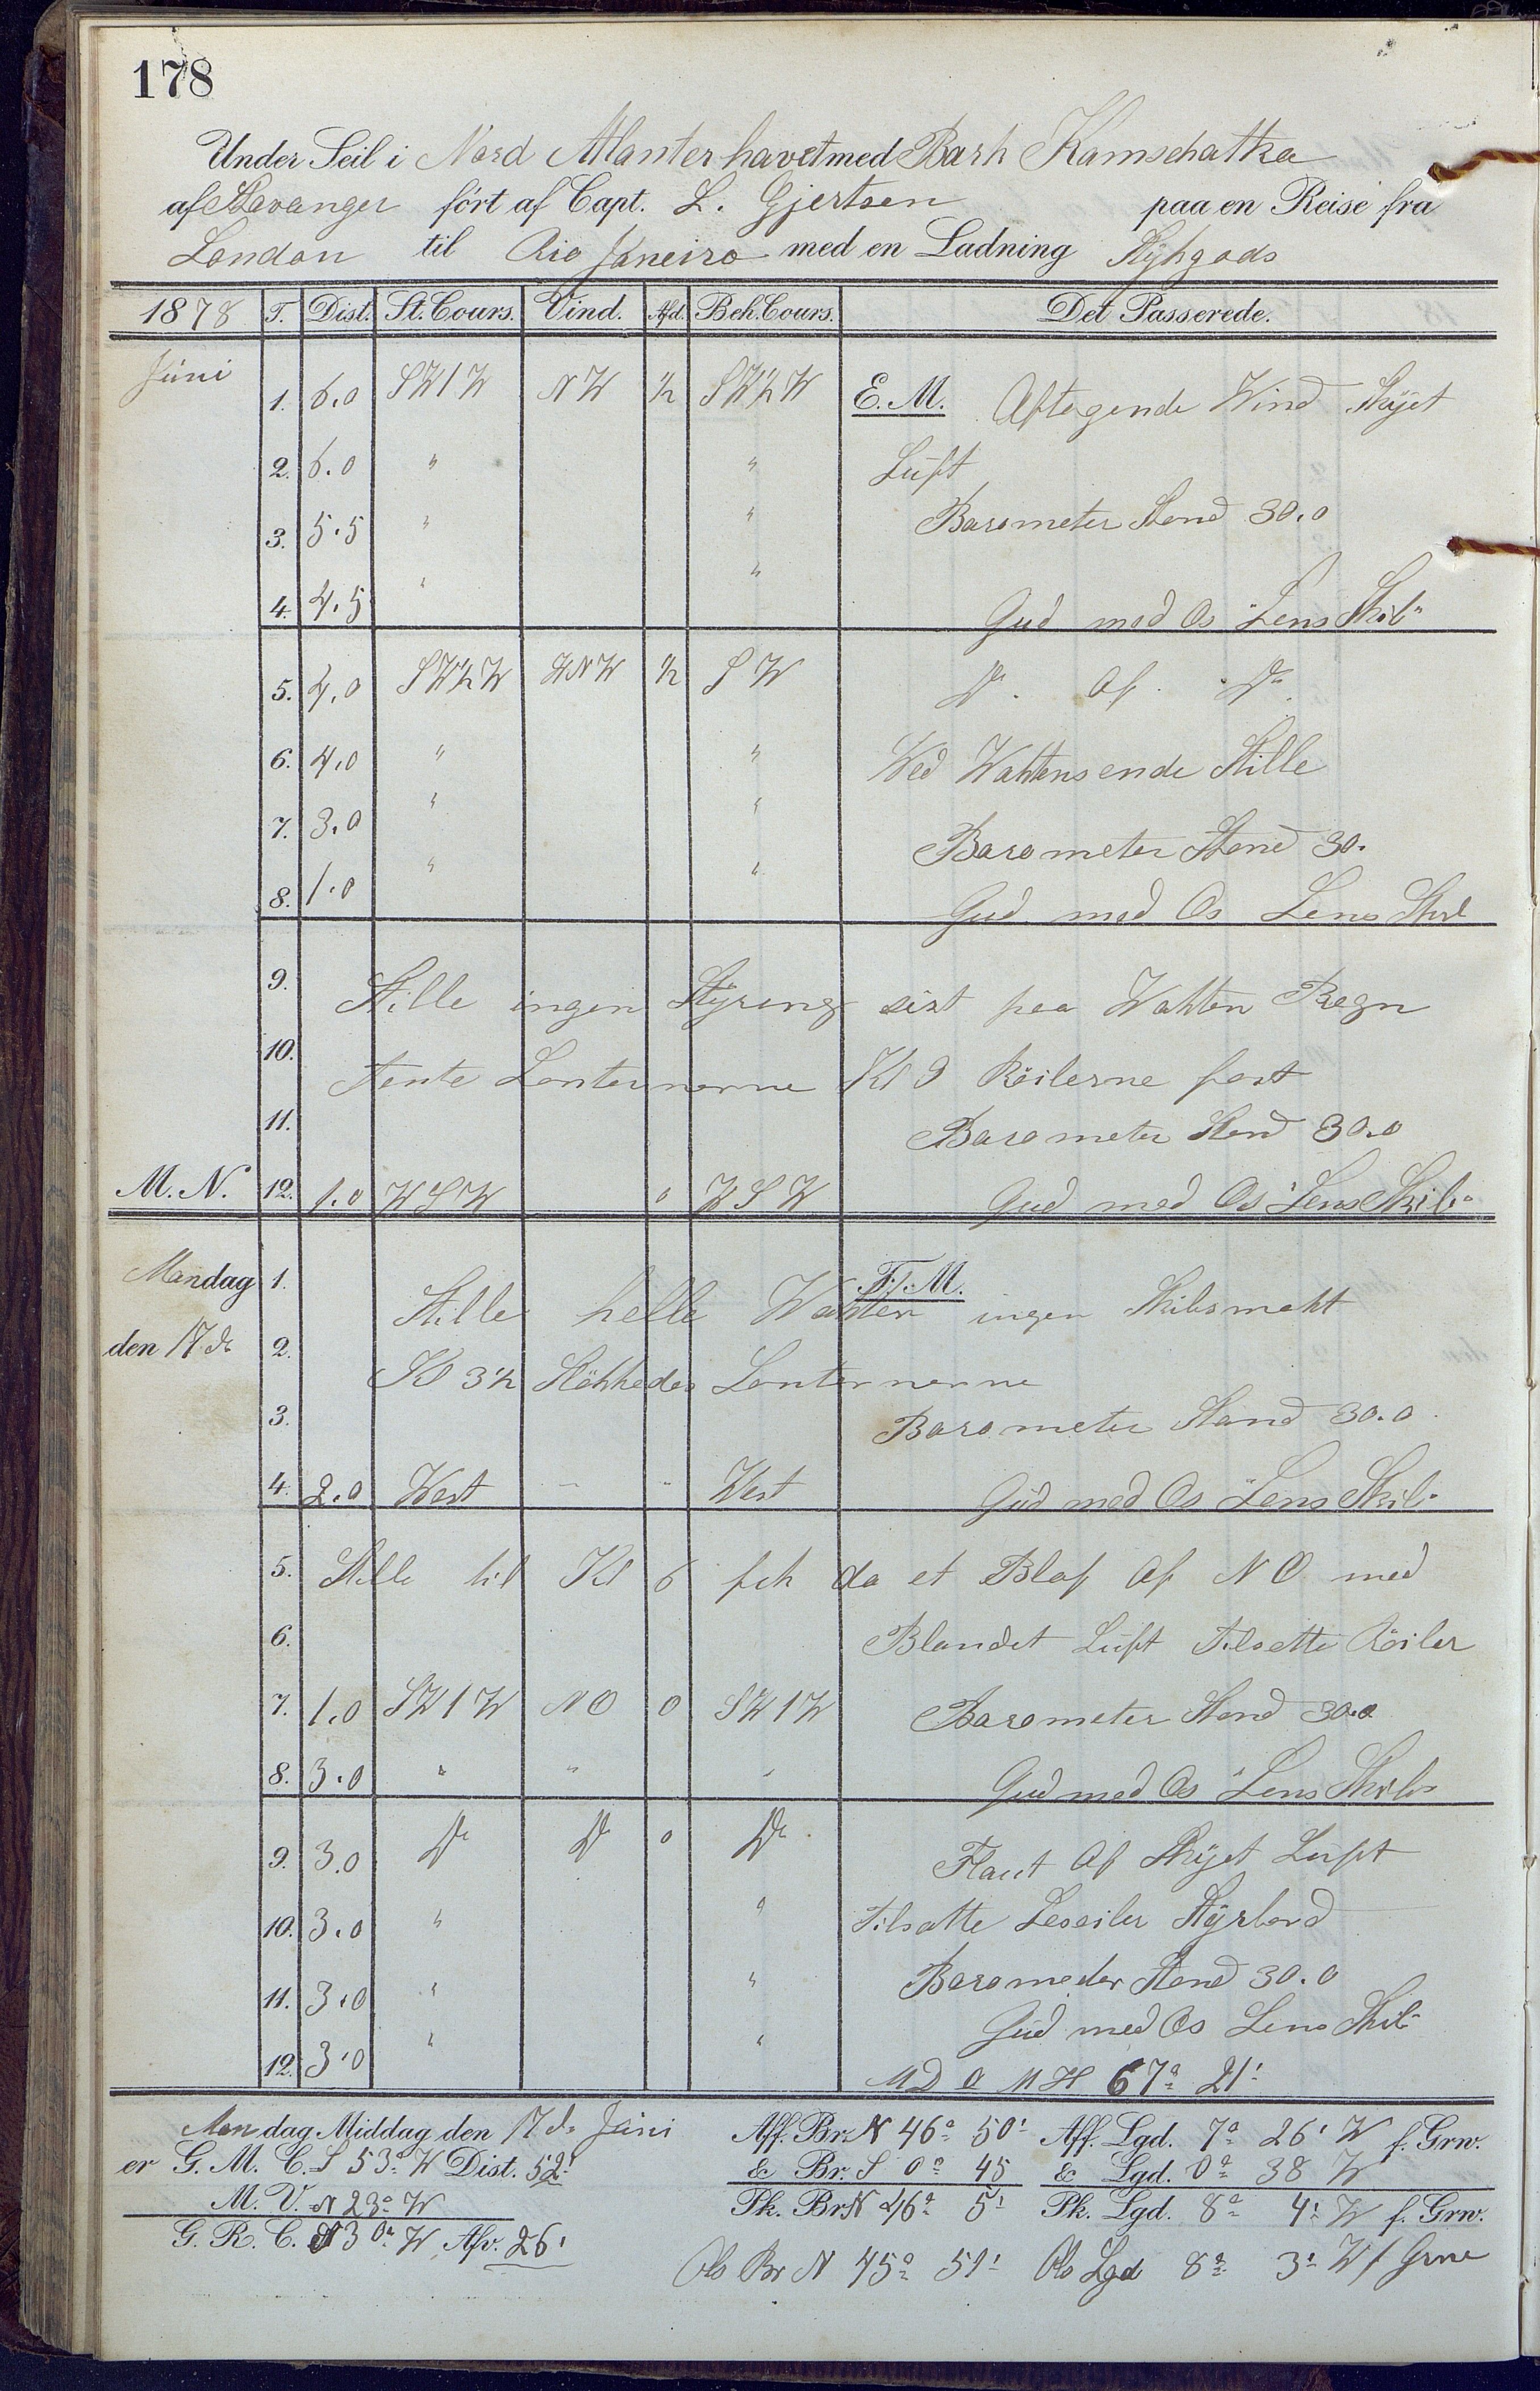 178
Under Seil i Nord Atlanterhavet med Bark Kamschatka
af Stavanger ført af Capt. L. Gjertsen paa en Reise fra
London til Rio Janeiro med en Ladning Stykgods
1878 T. Dist. St. Cours. Vind. Afd. Beh. Cours. Det Passerede.
Juni 1. 6.0 SW1W NW 1/2 SW1/2W E. M. Aftagende Wind Skyet
2. 6.0 " " Luft
3. 5.5 " " Barometer Stand 30.0
4. 4.5 " " Gud med Os "Lens Skib"
5. 4.0 SW1/2W WNW 1/2 SW Do. Af. Do.
6. 4.0 " " Wed Waktens ende Stille
7. 3.0 " " Barometer Stand 30.
8. 1.0 " " Gud med Os Lens Skib
9. Stille ingen Styring sist paa Wakten Regn
10. tente Lanternerne Kl 9 Röilerne fast
11. Barometer Stand 30.0
M. N. 12. 1.0 WSW 0 WSW Gud med Os "Lens Skib"
Mandag 1. F. M.
Stille helle Wakten ingen Skibsmakt
den 17de 2.
Kl 3 1/2 Slökkedes Lanternerne
3. Barometer Stand 30.0
4. 2.0 West - - West Gud med Os "Lens Skib"
5. Stille til Kl 6 fik da et Blaf Af NO med
6. Blandet Luft Tilsatte Röiler
7. 1.0 SW1W NO 0 SW1W Barometer Stand 30.0
8. 3.0 " " " Gud med Os "Lens Skib"
9. 3.0 Do Do 0 Do Flaut Af Skyet Luft
10. 3.0 " " Tilsatte Leseiler Styrbord
11. 3.0 " " Baromeder Stand 30.0
Gud med Os Lens Skib"
12. 3.0 " "
MD O MH 67° 21'
Mandag Middag den 17de Juni Aff. Br. N 46° 50' Aff. Lgd. 7° 26' W f. Grw.
er G. M. C. S 53° W Dist. 52' & Br. S 0° 45 & Lgd. 0° 38 W
M. V. N 23° W Pk. Br. N 46° 5' Pk. Lgd. 8° 4' W f. Grw.
G. R. C. S 30° W Afv. 26'
Ob Br N 45° 51' Ob Lgd 8° 3' W f Grw